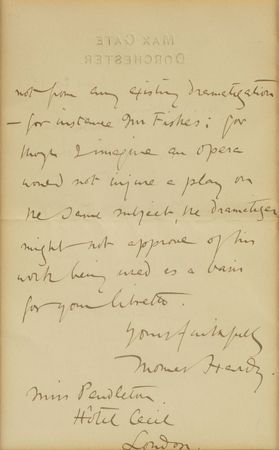 MAX GATE
DORCHESTER
not from any existing dramatization
— for instance Mr Fiske's; for
though I imagine an opera
would not injure a play on
the same subject, the dramatizer
might not approve of his
work being used as a basis
for your libretto.
Yours faithfully
Thomas Hardy.
Miss Pendleton.
Hôtel Cecil
London.